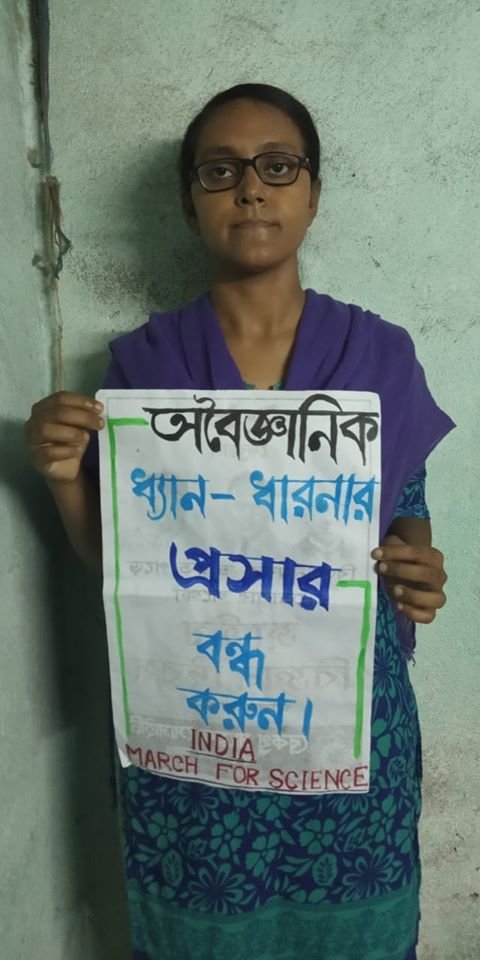 অবৈজ্ঞানিক
ধ্যান- ধারনার
প্রসার
বন্ধ
করুন।
INDIA
MARCH FOR SCIENCE